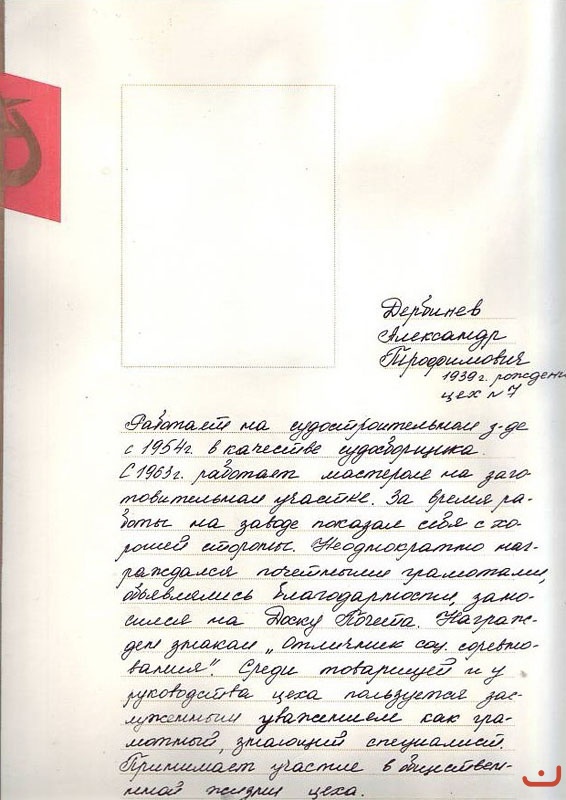 Дербинев
Александр
Трофимович
1939 г. рожден
цех №7
Работает на судостроительном з-де
с 1954г. в качестве судосборщика.
С 1963г. работает мастером на заго-
товительном участке. За время ра-
боты на заводе показал себя с хо-
рошей стороны. Неоднократно наг-
раждался почетными грамотами,
объявлялись благодарности, зано-
сился на Доску Почета. Награж-
ден знаком „Отличник соц. соревно-
вания". Среди товарищей и у
руководства цеха пользуется зас-
луженным уважением как гра-
мотный, знающий специалист.
Принимает участие в обществен-
ной жизни цеха.